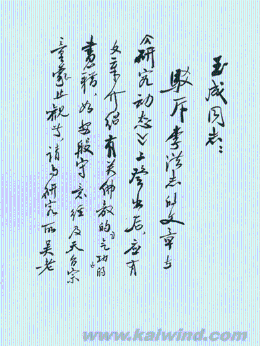 玉成同志：
驳斥李洪志的文章在
《研究动态》上登出后，应有
文章介绍有关佛教的气功的
书籍，如安般守意经及天台宗
童蒙止观等，请与研究所吴老
www.kaiwind.com